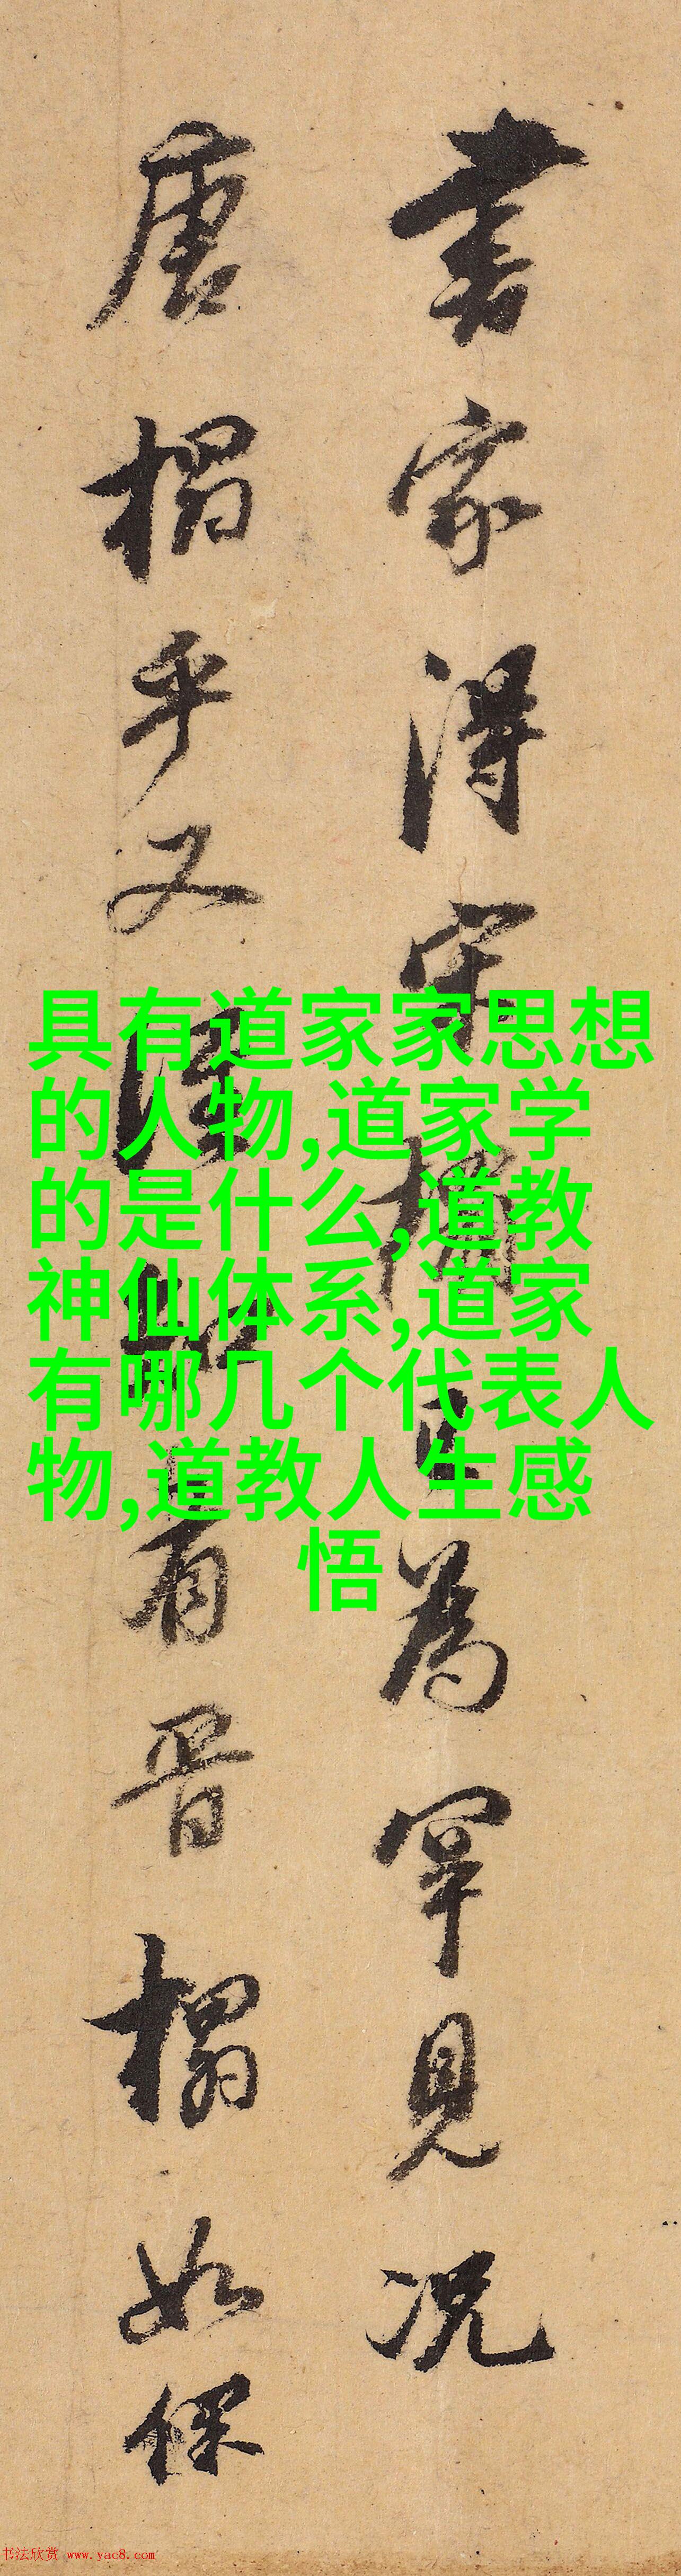 書家得宋榻為罕見況
唐榻乎又有晉榻如保
具有道家家思想
的人物,道家学
的是什么,道教
神仙体系,道家
有哪几个代表人
物,道教人生感
悟
书法欣赏 www.yac8.com